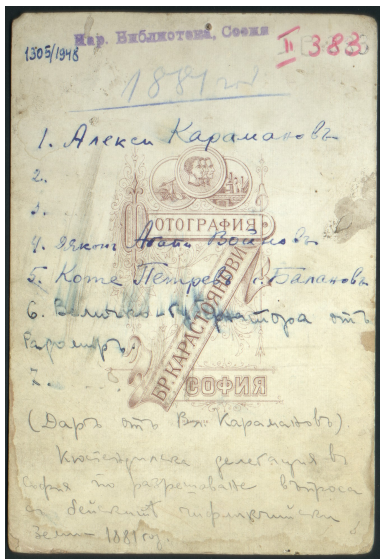 Нар. Библиотека, София
1305/1948
II 383
1881 год
1. Алекси Карамановъ
2.
3.
ФОТОГРАФИЯ
4. Дяконъ Войновъ
5. Коте Петровъ г. Балановъ
6. Величко - отъ
Радомиръ.
7.
БР. КАРАСТОЯНОВИ
СОФИЯ
(Даръ отъ Вл. Карамановъ).
Кюстендилска делегация въ
София по разрешаване въпроса
за бейските чифлишки
земи - 1881 год.